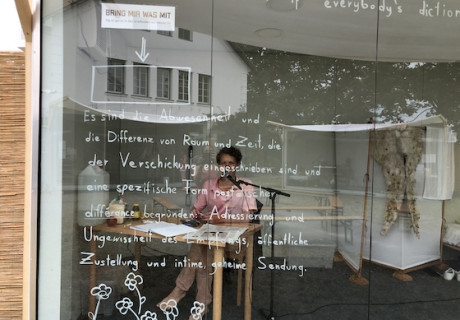 if everybody's diction
BRING MIR WAS MIT
Es sind die Abwesenheit und
die Differenz von Raum und Zeit, die
der Verschickung eingeschrieben sind und
eine spezifische Form postalischer
différence begründen: Adressierung und
Ungewissheit des Empfangs, öffentliche
Zustellung und intime, geheime Sendung.